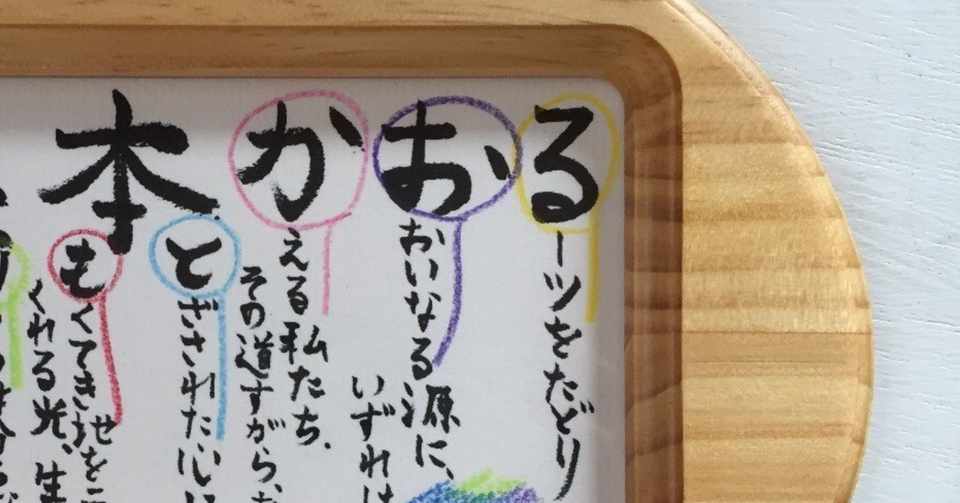 本かおる
ーツをたどり
おいなる源に、
いずれは
える私たち、
その道すがら、
とざされた心
もくてき地を
くれる光、生